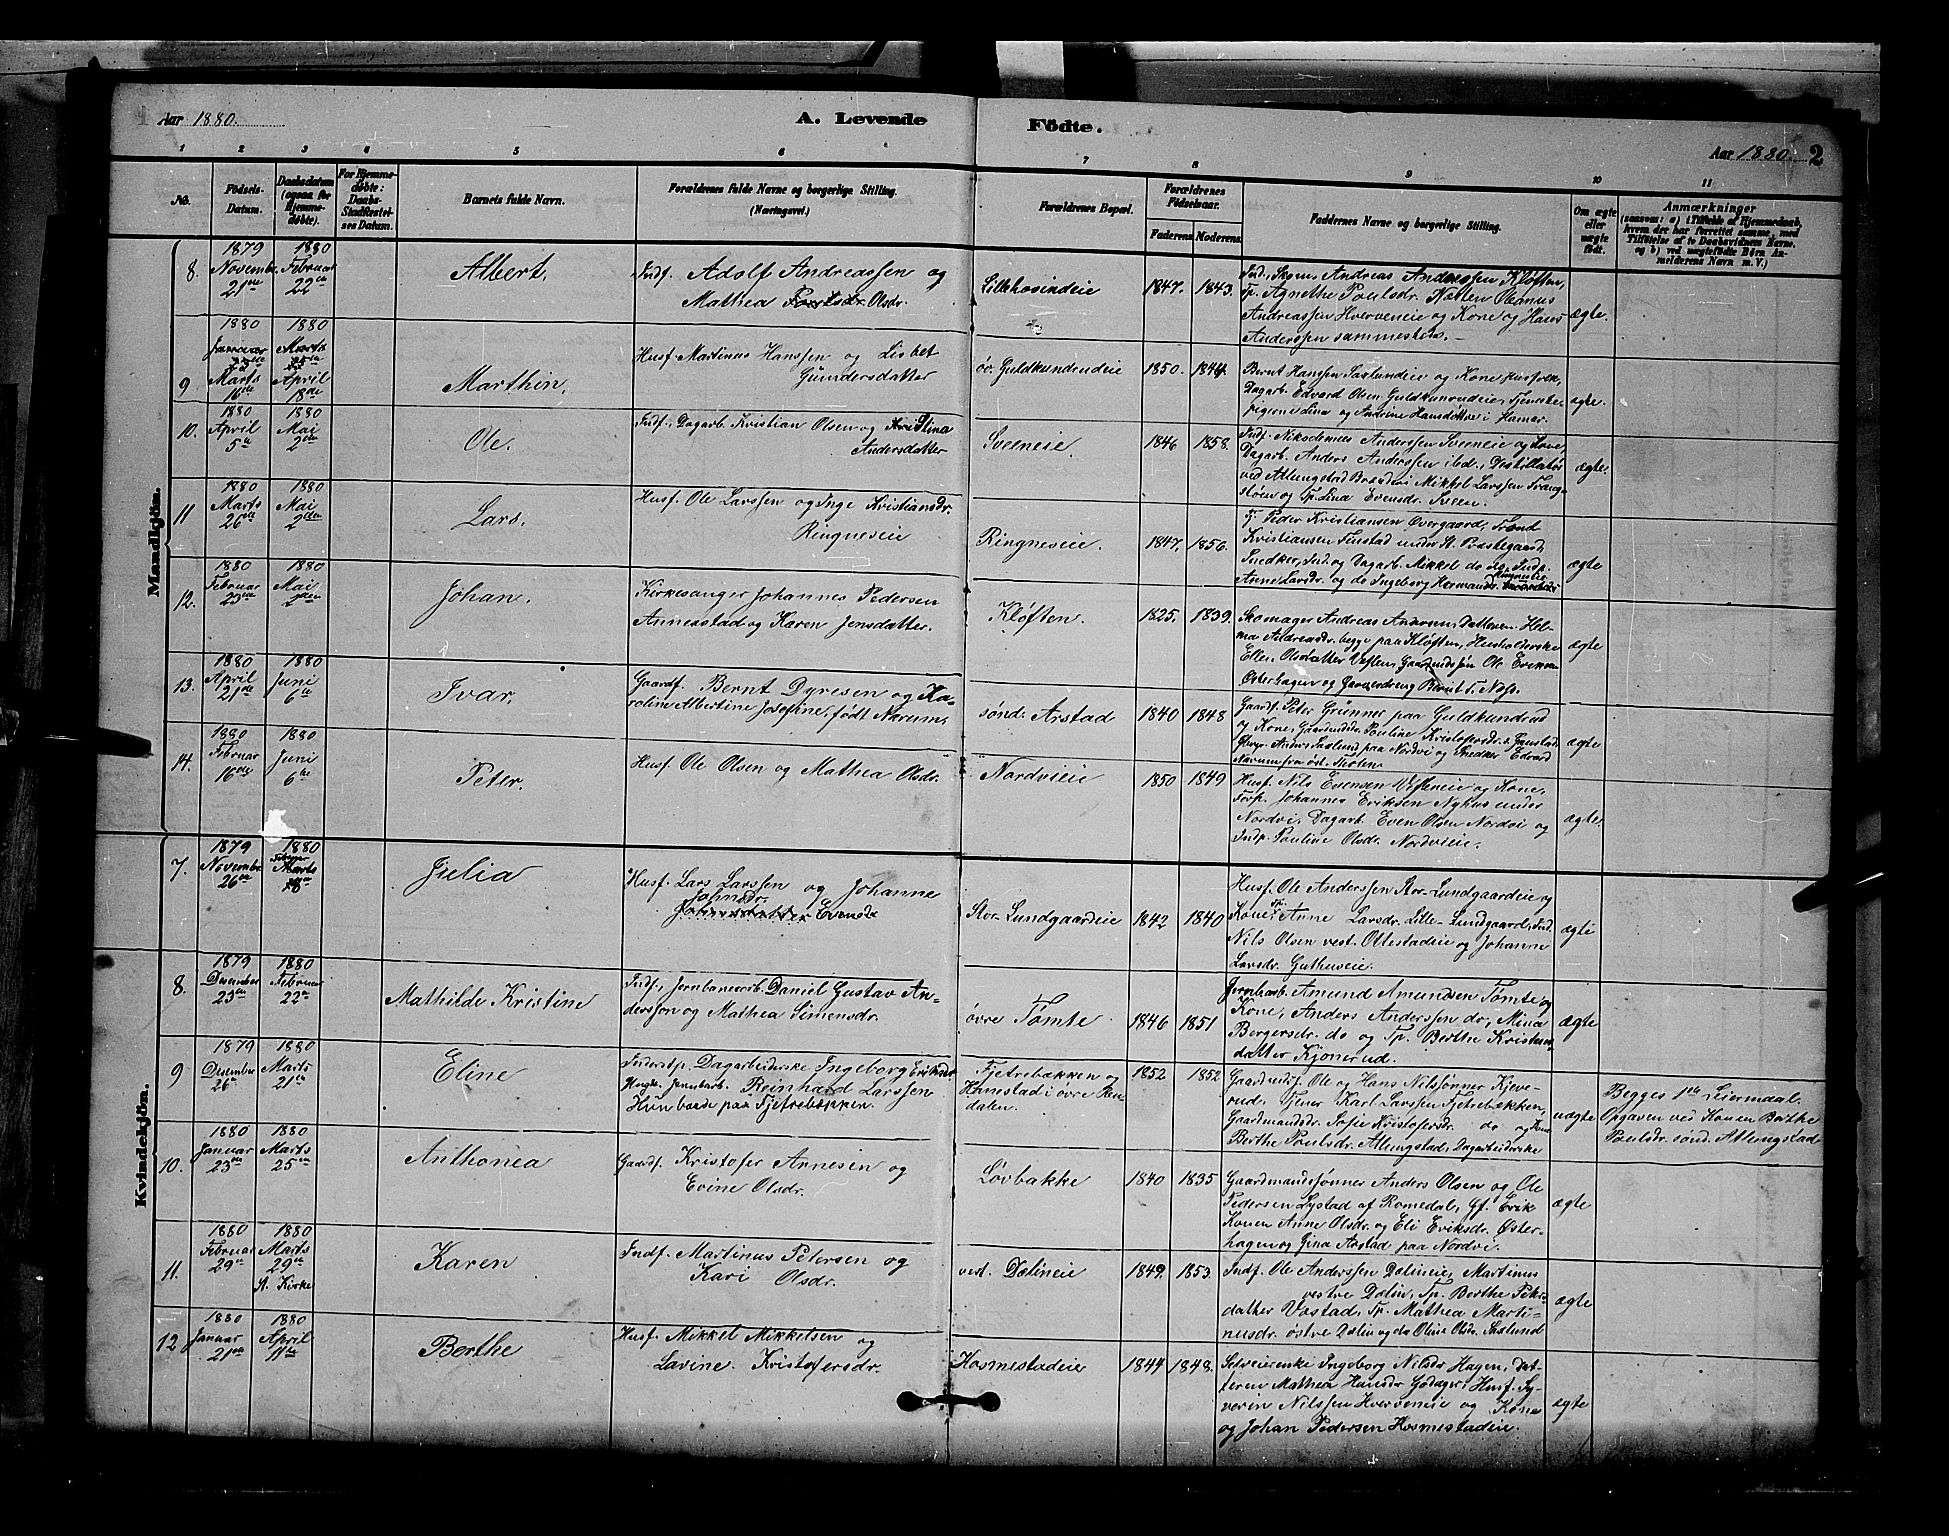 Aar 1880.
A. Levende
Födte.
Aar 1880. 2
1 2 3 4 5 6 7 8 9 10 11
No.
Födsels-Datum.
Daabsdatum (ogsaa for Hjemmedöbte).
For Hjemmedöbte: Daabs-Stadfæstelses Datum.
Barnets fulde Navn.
Forældrenes fulde Navne og borgerlige Stilling. (Næringsvei.)
Forældrenes Bopæl.
Forældrenes Födselsaar.
Faderens Moderens
Faddernes Navne og borgerlige Stilling.
Om ægte eller uægte födt.
Anmærkninger
(saasom: a) i Tilfælde af Hjemmedaab, hvem der har forrettet samme, med Tilföielse af to Daabsvidners Navne, og b) ved uægtefödte Börn Anmelderens Navn m. V.)
Mandkjön.
8. 1879 Novembr. 21de
1880 Februar 22de
Albert.
Indf. Adolf Andreassen og
Mathea Olsdr.
Lillehosindeie
1847. 1843.
Ind., Skom. Andreas Anderssen Kløften,
Tp. Agnethe Poulsdr. Nætten Oleanus
Andreassen Hverveneie og Kone og Hans
Anderssen sammesteds.
ægte.
9 1880 Januar Marts 16de
1880 Marts April 18de
Marthin.
Husf. Martinus Hanssen og Lisbet
Gundersdatter
öv. Guldkundrudeie
1850. 1844.
Bernt Hanssen Saxlundeie og Kone Husfolk,
Dagarb. Edvard Olsen Guldkunrudeie, Tjeneste-
pigerne Lina og Andrine Hansdøttre i Hamar.
ægte.
10. 1880 April 5te
1880 Mai 2den
Ole.
Indf., Dagarb. Kristian Olsen og Kristina
Andersdatter
Sveeneie.
1846 1858.
Indf. Nikodemus Anderssen Sveeneie og Kone,
Dagarb. Anders Anderssen ibd., Destillatör
ved Atlungstad Brænderi Mikkel Larssen Trang-
støen og Tp. Lina Evensdr. Sveen.
ægte
11 1880 Marts 26de
1880 Mai 2den
Lars.
Husf. Ole Larssen og Inge Kristiansdr.
Ringneseie
Ringneseie.
1847. 1856.
Tj. Peder Kristiansen Overgaard, Trond
Kristiansen Finstad under St. Præstegaard,
Snedker, Ind. og Dagarb. Mikkel do
Anne Larsdr. og do Ingeborg Hermandsdr. Ringneseie
ægte
12. 1880 Februar 23de
1880 Mai 2den
Johan.
Kirkesanger Johannes Pedersen
Annerstad og Karen Jensdatter.
Kløften.
1825. 1839.
Skomager Andreas Andersen, Datteren Hel-
ma Andreasdr. begge paa Kløften, Husholderske
Ellen Olsdatter Veflen, Gaardmdssøn Ole Evensen
Østerhagen og Bernt T. Næss.
ægte
13. 1880 April 21de
1880 Juni 6te
Ivar.
Gaardf. Bernt Dyresen og Ka-
roline Albertine Josefine, født Narum.
sønd. Arstad
1840 1848
Gaardf. Peter Grünner paa Guldkundrud
og Kone, Gaardmdsdr. Pauline Kristofersdr.
Anders Saxlund paa Nordvi og Snedker Edvard
Narum fra öst. Thoten.
ægte
14. 1880 Februar 16de
1880 Juni 6te
Peter.
Husf. Ole Olsen og Mathea Olsdr.
Nordvieie
1850 1849
Husf. Nils Evensen Vefleneie og Kone,
Forp. Johannes Eriksen Nyhus under
Nordvi, Dagarb. Even Olsen Nordvi og
Indp. Pauline Olsdr. Nordvieie.
ægte.
Kvindekjön.
7. 1879 Novembr. 26de
1880 Februar
Julia
Husf. Lars Larssen og Johanne
Johnsdr.
Stor Lundgaardeie
1842 1840
Husf. Ole Anderssen Stor-Lundgaardeie og
Kone, Tp. Anne Larsdr. Lille-Lundgaard, Ind.
Nils Olsen vest. Ottestadeie og Johanne
Larsdr. Guthuseie.
ægte
8. 1879 December 23de
1880 Februar 22de
Mathilde Kristine
Indf., Jernbanearb. Daniel Gustav An-
dersson og Mathea Simensdr.
øvre Tømte
1846 1851
Jernbarb. Amund Amundsen Tømte og
Kone, Anders Anderssen do, Mina
Bergersdr. do og Tp. Berthe Kristens-
datter Kjonerud.
ægte
9 1879 Desember 26de
1880 Marts 21de
Eline
Inderstp. Dagarbeiderske Ingeborg Eriksdr
Ungk. Jernbarb. Reinhard Larssen
Hun boede paa Fjetrebækken.
Fjetrebækken og
Hanestad i øvre Ren-
dalen.
1852 1852
Gaardmdss. Ole og Hans Nilssønner Kjeve-
rud, Tjener Karl Larssen Fjetrebækken,
Gaardmandsdr. Sofie Kristofersdr. do og Kone
Berthe Poulsdr. Atlungstad, Dagarbeiderske
uægte
Begges 1ste Leiermaal.
Opgaven ved Konen Berthe
Poulsdr. sønd. Atlungstad
10. 1880 Januar 23de
1880 Marts 25de
Anthonea
Gaardf. Kristofer Arnesen og
Evine Olsdr.
Løvbakke
1840 1835
Gaardmandssønner Anders Olsen og Ole
Pedersen Lystad af Romedal, Gf. Erik
Konen Anne Olsdr. og Eli Eriksdr. Øster-
hagen og Gina Arstad paa Nordvi.
ægte
11. 1880 Februar 29de
1880 Marts 29de
St. Kirke
Karen
Indf. Martinus Petersen og
Kari Olsdr.
vest. Dælineie
1849. 1853.
Indf. Ole Anderssen Dælineie, Martinus
vestre Dælin, Tp. Berthe Peders-
datter Vostad, Tp. Mathea Marti-
nusdr. østre Dælin og do Oline Olsdr. Saxlund
ægte
12 1880 Januar 21de
1880 April 11te
Berthe
Husf. Mikkel Mikkelsen og
Lavine Kristofersdr.
Hosmestadeie
1844 1848.
Selveierenke Ingeborg Nilsdr Hagen, Dat-
teren Mathea Hansdr Godager, Husf. Sy-
verin Nilssen Hverveneie og Kone
og Johan Pedersen Hosmestadeie.
ægte